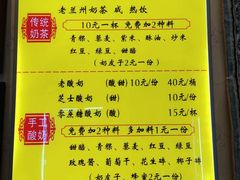 传统
奶茶
老兰州奶茶 咸 热饮
10元一杯 免费加2种料
青稞、藜麦、紫米、酥油、炒米
红豆、绿豆、甜醅
(奶皮子2元一份)
手工
酸奶
老酸奶 (酸甜) 10元/份 40元/桶
芝士酸奶 (甜) 10元/份
零蔗糖酸奶 (酸) 15元/份
免费加2种料 多加料1元一份
甜醅、青稞、藜麦、红豆、绿豆
玫瑰酱、葡萄干、花生碎、椰子碎
(奶皮子、蜂蜜2元一份)